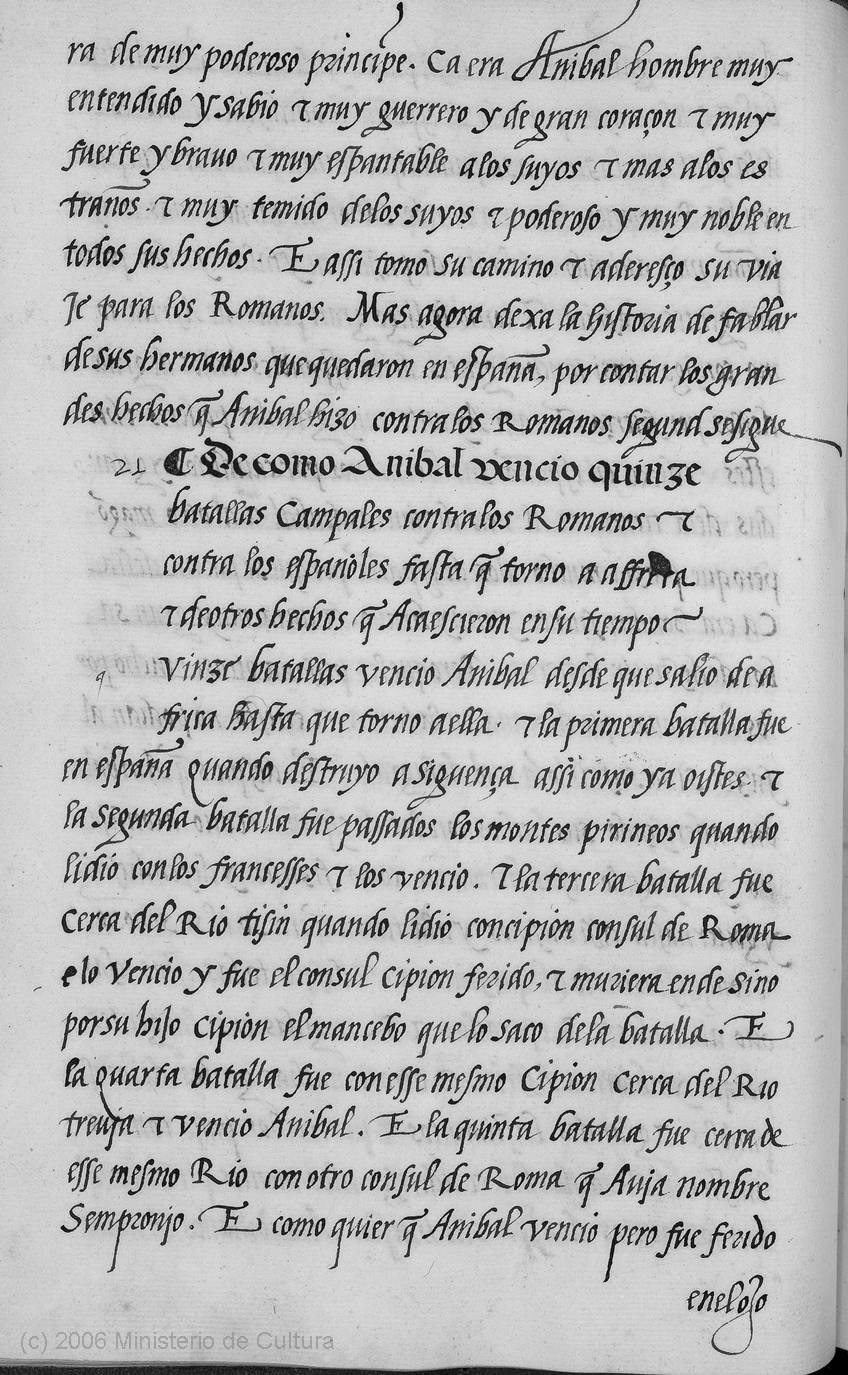 ra de muy poderoso principe. Ca era Anibal hombre muy
entendido y sabio τ muy guerrero y de gran coraçon τ muy
fuerte y bravo τ muy espantable a los suyos τ mas a los es
traños. τ muy temido de los suyos τ poderoso y muy noble en
todos sus hechos. E assi tomo su camino τ aderesço su via
Je para los Romanos. Mas agora dexa la historia de fablar
de sus hermanos que quedaron en españa, por contar los gran
des hechos q̃ Anibal hizo contra los Romanos segund se sigue
21 ¶ De como Anibal vencio quinze
batallas Campales contra los Romanos τ
contra los españoles fasta q̃ torno a affrica
τ de otros hechos q̃ Acaescieron en su tiempo
q vinze batallas vencio Anibal desde que salio de a
frica hasta que torno a ella. τ la primera batalla fue
en españa quando destruyo a siguença assi como ya oistes. τ
la segunda batalla fue passados los montes pirineos quando
lidio con los francesses τ los vencio. τ la tercera batalla fue
Cerca del Rio tisin quando lidio con cipion consul de Roma
e lo vencio y fue el consul Cipion ferido, τ muriera ende sino
por su hijo Cipion el mancebo que lo saco de la batalla. E
la quarta batalla fue con esse mesmo Cipion Cerca del Rio
treuja τ vencio Anibal. E la quinta batalla fue cerca de
esse mesmo Rio con otro consul de Roma q̃ Auja nombre
Sempronjo. E como quier q̃ Anibal vencio pero fue ferido
en el ojo
(c) 2006 Ministerio de Cultura